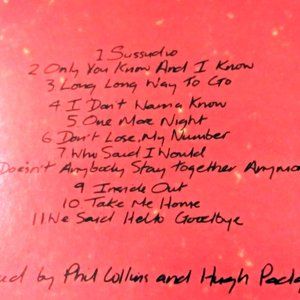 1 Sussudio
2 Only You Know And I Know
3 Long Long Way To Go
4 I Don't Wanna Know
5 One More Night
6 Don't Lose My Number
7 Who Said I Would
Doesn't Anybody Stay Together Anymo
9 Inside Out
10 Take Me Home
11 We Said Hello Goodbye
by Phil Collins and Hugh